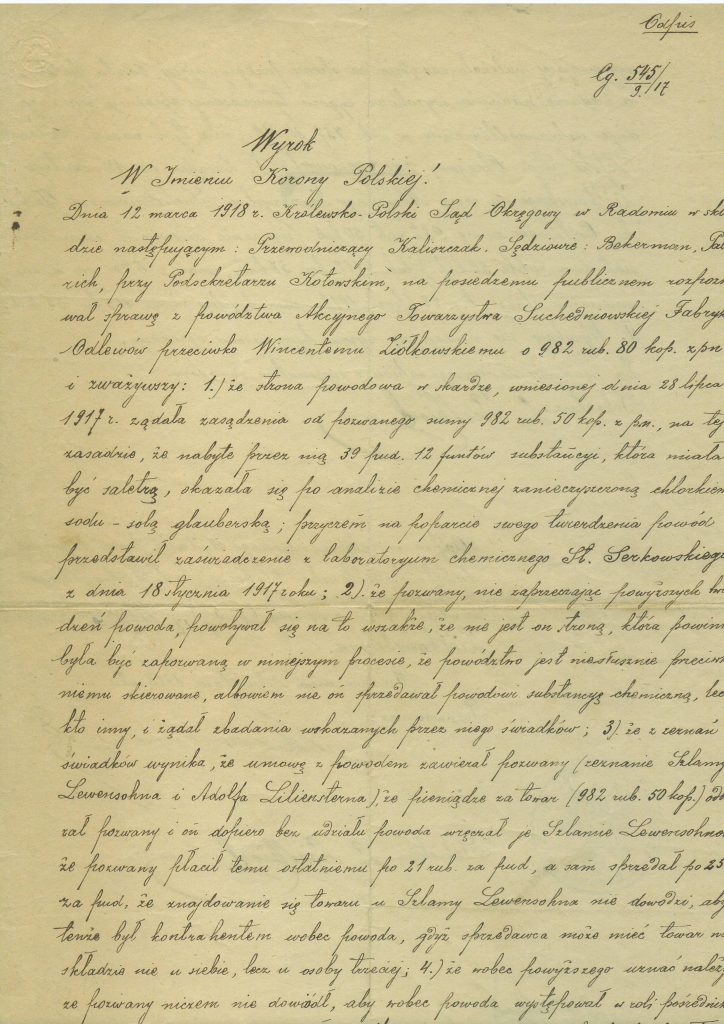 Odpis
Cg. 545/9./17
Wyrok
W Imieniu Korony Polskiej!
Dnia 12 marca 1918 r. Królewsko-Polski Sąd Okręgowy w Radomiu w skła
dzie następującym: Przewodniczący Kaliszczak. Sędziowie: Bekerman, Pau
rich, przy Podsekretarzu Kotowskim, na posiedzeniu publicznem rozpozna
wał sprawę z powództwa Akcyjnego Towarzystwa Suchedniowskiej Fabryki
Odlewów przeciwko Wincentemu Ziółkowskiemu o 982 rub. 80 kop. z pn
i zważywszy: 1.) że strona powodowa w skardze, wniesionej dnia 28 lipca
1917 r. żądała zasądzenia od pozwanego sumy 982 rub. 50 kop. z pn., na tej
zasadzie, że nabyte przez nią 39 pud. 12 funtów substancyi, która miała
być saletrą, okazała się po analizie chemicznej zanieczyszczoną chlorkiem
sodu - solą glauberską; przyczem na poparcie swego twierdzenia powód
przedstawił zaświadczenie z laboratoryum chemicznego St. Serkowskiego
z dnia 18 stycznia 1917 roku; 2). że pozwany, nie zaprzeczając powyższych twier
dzeń powoda, powoływał się na to wszakże, że nie jest on stroną, która powinna
była być zapozwaną w niniejszym procesie, że powództwo jest niesłusznie przeciw
niemu skierowane, albowiem nie on sprzedawał powodowi substancyę chemiczną, lecz
kto inny, i żądał zbadania wskazanych przez niego świadków; 3). że z zeznań
świadków wynika, że umowę z powodem zawierał pozwany (zeznanie Szlamy
Lewensohna i Adolfa Liliensterna), że pieniądze za towar (982 rub. 50 kop.) ode
rał pozwany i on dopiero bez udziału powoda wręczał je Szlamie Lewensohno
że pozwany płacił temu ostatniemu po 21 rub. za pud, a sam sprzedał po 25
za pud, że znajdowanie się towaru u Szlamy Lewensohna nie dowodzi, aby
tenże był kontrahentem wobec powoda, gdyż sprzedawca może mieć towar na
składzie nie u siebie, lecz u osoby trzeciej; 4.) że wobec powyższego uznać należy
że pozwany niczem nie dowiódł, aby wobec powoda występował w roli pośrednic